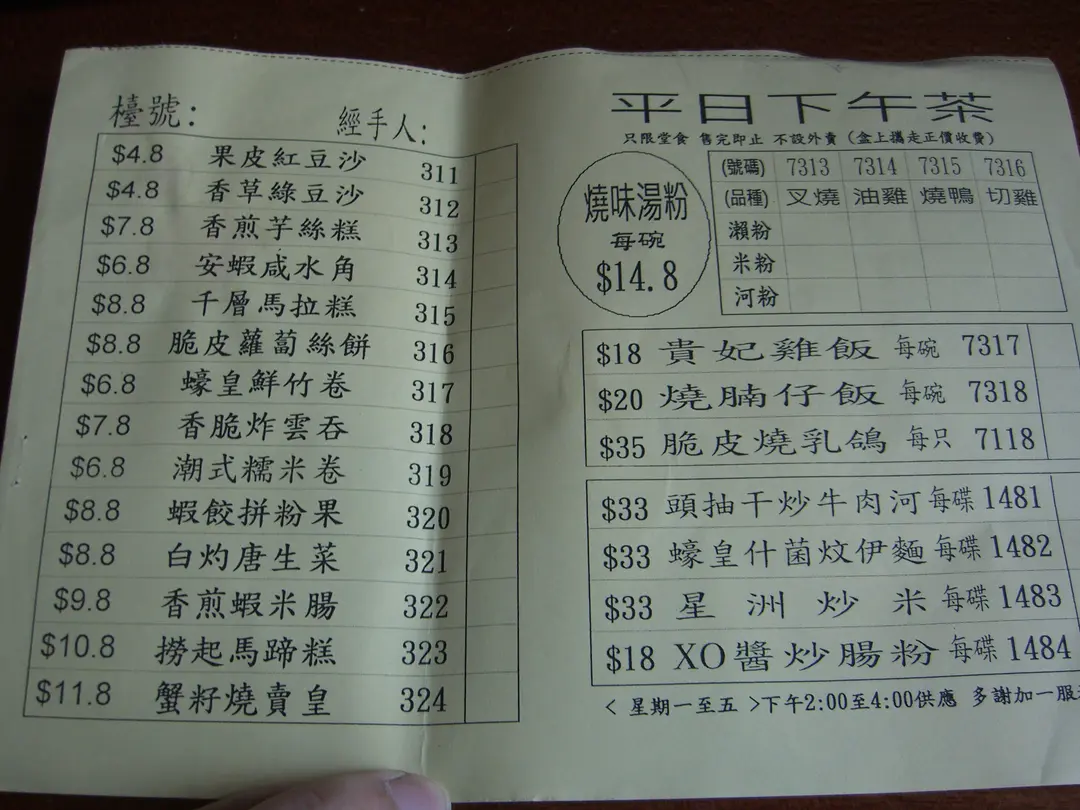 檯號：
經手人：
$4.8 果皮紅豆沙 311
$4.8 香草綠豆沙 312
$7.8 香煎芋絲糕 313
$6.8 安蝦咸水角 314
$8.8 千層馬拉糕 315
$8.8 脆皮蘿蔔絲餅 316
$6.8 蠔皇鮮竹卷 317
$7.8 香脆炸雲吞 318
$6.8 潮式糯米卷 319
$8.8 蝦餃拼粉果 320
$8.8 白灼唐生菜 321
$9.8 香煎蝦米腸 322
$10.8 撈起馬蹄糕 323
$11.8 蟹籽燒賣皇 324
平日下午茶
只限堂食 售完即止 不設外賣 (盒上攜走正價收費)
燒味湯粉
每碗
$14.8
(號碼) 7313 7314 7315 7316
(品種) 叉燒 油雞 燒鴨 切雞
瀨粉
米粉
河粉
$18 貴妃雞飯 每碗 7317
$20 燒腩仔飯 每碗 7318
$35 脆皮燒乳鴿 每只 7118
$33 頭抽干炒牛肉河 每碟 1481
$33 蠔皇什菌炆伊麵 每碟 1482
$33 星洲炒米 每碟 1483
$18 XO醬炒腸粉 每碟 1484
< 星期一至五 >下午2:00至4:00供應 多謝加一服